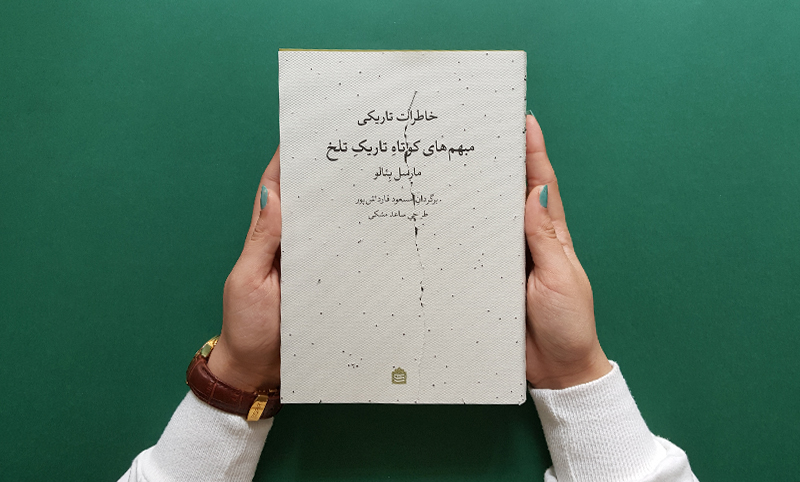 خاطرات تاریکی
مبهم‌های کوتاهِ تاریکِ تلخ
مارسل بئالو
برگردانِ مسعود قاردش‌پور
طرحِ ساعد مشکی